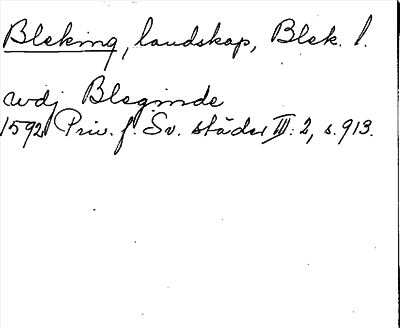 Bleking, landskap, Blek. l.
udj Bleginde
1592 Priv. f. Sv. städer III: 2, s. 913.